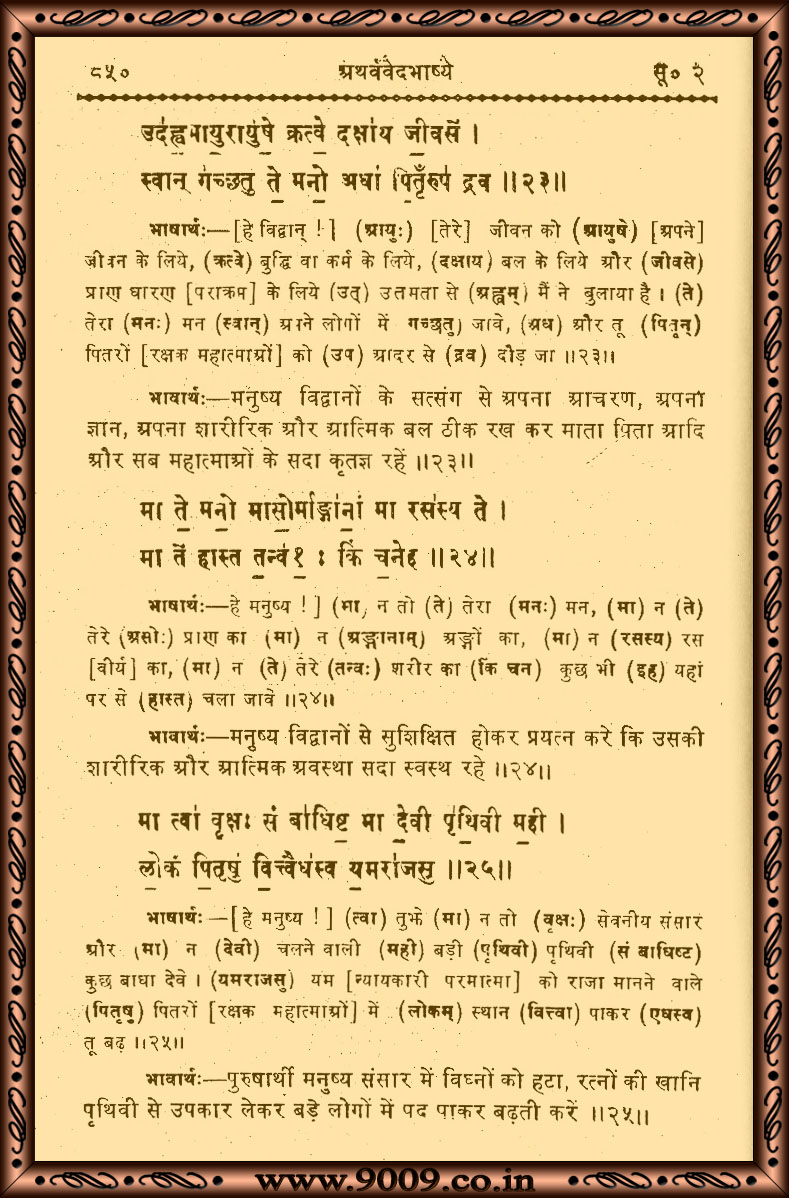 ८५० अथर्ववेदभाष्ये सू० २
उद॑ह्व॒मायु॒रायु॑षे॒ क्रत्वे॒ दक्षा॑य जी॒वसे॑ ।
स्वान् ग॑च्छतु ते॒ मनो॒ अधा॑ पि॒तॄँरुप॑ द्रव ॥२३॥
भाषार्थः—[हे विद्वान् !] (आयुः) [तेरे] जीवन को (आयुषे) [अपने]
जीवन के लिये, (क्रत्वे) बुद्धि वा कर्म के लिये, (दक्षाय) बल के लिये और (जीवसे)
प्राण धारण [पराक्रम] के लिये (उत्) उत्तमता से (अह्वम्) मैं ने बुलाया है । (ते)
तेरा (मनः) मन (स्वान्) अपने लोगों में गच्छतु) जावे, (अध) और तू (पितॄन्)
पितरों [रक्षक महात्माओं] को (उप) आदर से (द्रव) दौड़ जा ॥२३॥
भावार्थः—मनुष्य विद्वानों के सत्संग से अपना आचरण, अपना
ज्ञान, अपना शारीरिक और आत्मिक बल ठीक रख कर माता पिता आदि
और सब महात्माओं के सदा कृतज्ञ रहें ॥२३॥
मा ते॒ मनो॒ मासो॒र्माङ्गा॑नां॒ मा रस॑स्य ते ।
मा ते॑ हास्त त॒न्व॑१ : किं च॒नेह ॥२४॥
भाषार्थः—हे मनुष्य !] (मा) न तो (ते) तेरा (मनः) मन, (मा) न (ते)
तेरे (असोः) प्राण का (मा) न (अङ्गानाम्) अङ्गों का, (मा) न (रसस्य) रस
[वीर्य] का, (मा) न (ते) तेरे (तन्वः) शरीर का (किं चन) कुछ भी (इह) यहां
पर से (हास्त) चला जावे ॥२४॥
भावार्थः—मनुष्य विद्वानों से सुशिक्षित होकर प्रयत्न करे कि उसकी
शारीरिक और आत्मिक अवस्था सदा स्वस्थ रहे ॥२४॥
मा त्वा॑ वृ॒क्षः सं बा॑धिष्ट॒ मा दे॒वी पृ॑थि॒वी म॒ही ।
लो॒कं पि॒तृषु॑ वि॒त्त्वैध॑स्व य॒मरा॑जसु ॥२५॥
भाषार्थः—[हे मनुष्य !] (त्वा) तुझे (मा) न तो (वृक्षः) सेवनीय संसार
और (मा) न (देवी) चलने वाली (मही) बड़ी (पृथिवी) पृथिवी (सं बाधिष्ट)
कुछ बाधा देवे । (यमराजसु) यम [न्यायकारी परमात्मा] को राजा मानने वाले
(पितृषु) पितरों [रक्षक महात्माओं] में (लोकम्) स्थान (वित्त्वा) पाकर (एधस्व)
तू बढ़ ॥२५॥
भावार्थः—पुरुषार्थी मनुष्य संसार में विघ्नों को हटा, रत्नों की खानि
पृथिवी से उपकार लेकर बड़े लोगों में पद पाकर बढ़ती करें ॥२५॥
www.9009.co.in